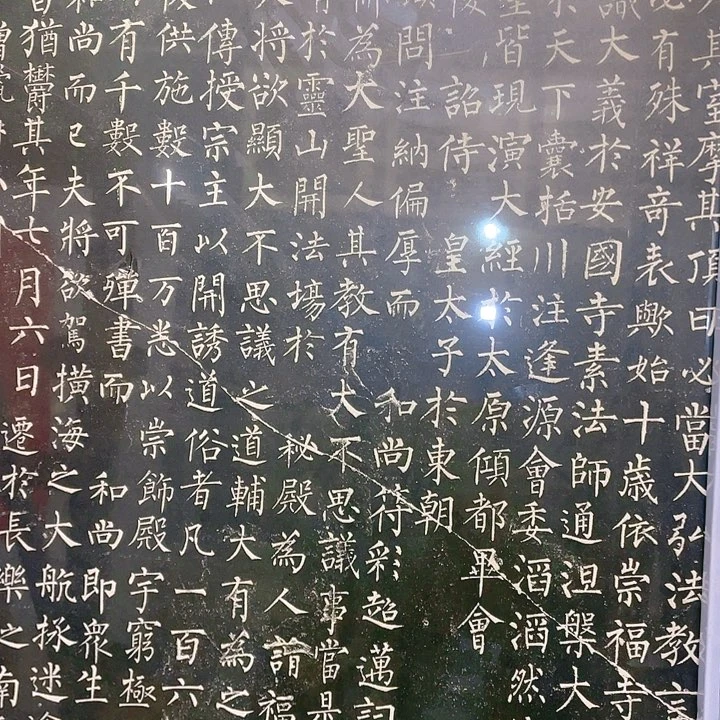 其室摩其頂曰必當大弘法教言
有殊祥奇表歟始十歲依崇福寺
識大義於安國寺素法師通涅槃大
於天下囊括川注逢源會委滔滔然
聖皆現演大經於太原傾都畢會
復詔侍 皇太子於東朝
顧問注納偏厚而 和尚符彩超邁詞
而為大聖人其教有大不思議事當是
於靈山開法場於 秘殿為人請福
大將欲顯大不思議之道輔大有為之
傳授宗主以開誘道俗者凡 一百六
後供施數十百万悉以崇飾殿宇窮極
有千數不可殫書而 和尚即眾生
和尚而已夫將欲駕橫海之大航拯迷途
猶鬱其年七月六日遷於長樂之南